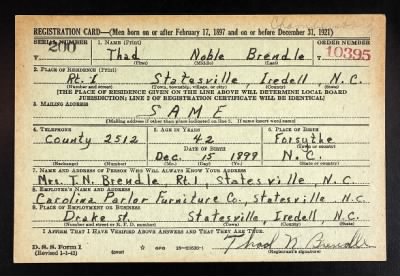 REGISTRATION CARD—(Men born on or after February 17, 1897 and on or before December 31, 1921)
SERIAL NUMBER 1. NAME (Print) ORDER NUMBER
Thad Noble Brendle 10395
(First) (Middle) (Last)
2. PLACE OF RESIDENCE (Print)
Rt. 1 Statesville Iredell, N.C.
(Number and street) (Town, township, village, or city) (County) (State)
[THE PLACE OF RESIDENCE GIVEN ON THE LINE ABOVE WILL DETERMINE LOCAL BOARD
JURISDICTION; LINE 2 OF REGISTRATION CERTIFICATE WILL BE IDENTICAL]
3. MAILING ADDRESS
SAME
[Mailing address if other than place indicated on line 2. If same insert word same]
4. TELEPHONE 5. AGE IN YEARS 6. PLACE OF BIRTH
County 2512 42 Forsythe
DATE OF BIRTH (Town or county)
Dec. 15 1899 N.C.
(Exchange) (Number) (Mo.) (Day) (Yr.) (State or country)
7. NAME AND ADDRESS OF PERSON WHO WILL ALWAYS KNOW YOUR ADDRESS
Mrs. T.N. Brendle, Rt.1, Statesville, N.C.
8. EMPLOYER'S NAME AND ADDRESS
Carolina Parlor Furniture Co., Statesville, N.C.
9. PLACE OF EMPLOYMENT OR BUSINESS
Drake St. Statesville, Iredell, N.C.
(Number and street or R. F. D. number) (Town) (County) (State)
I AFFIRM THAT I HAVE VERIFIED ABOVE ANSWERS AND THAT THEY ARE TRUE.
D. S. S. Form 1
(Revised 1-1-42) GPO Thad N. Brendle